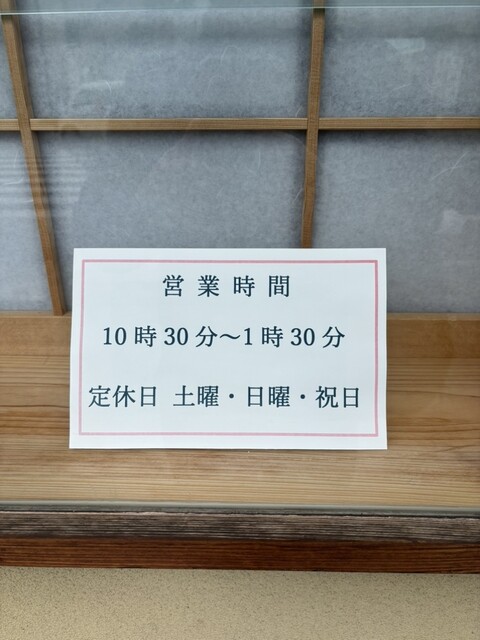 営業時間
10時30分～1時30分
定休日 土曜・日曜・祝日